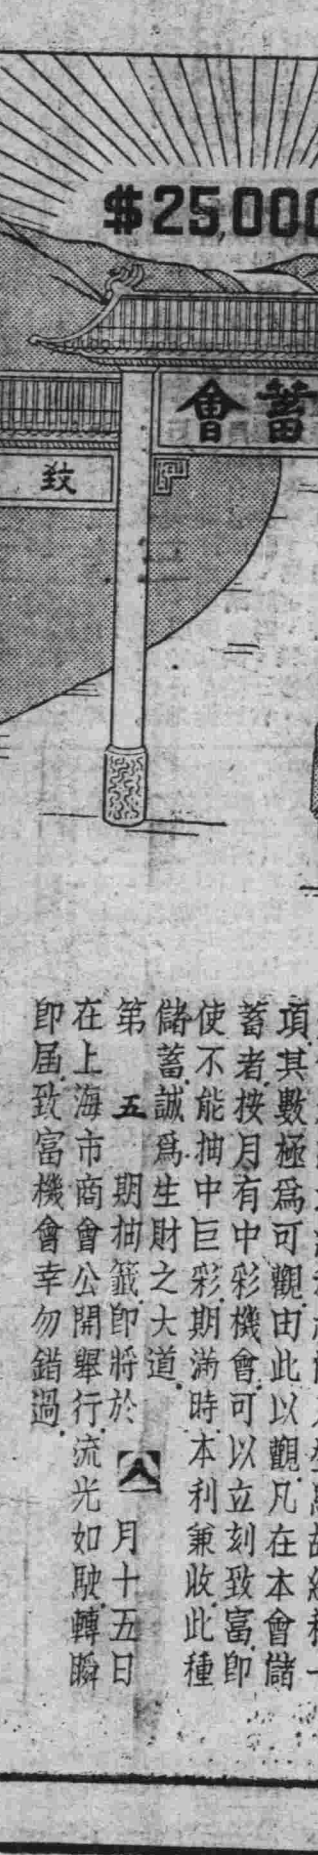 $25,000
蓄會
致
項其數極爲可觀由此以觀凡在本會儲
蓄者按月有中彩機會可以立刻致富即
使不能抽中巨彩期滿時本利兼收此種
儲蓄誠爲生財之大道
第五期抽籤即將於八月十五日
在上海市商會公開舉行流光如駛轉瞬
即届致富機會幸勿錯過